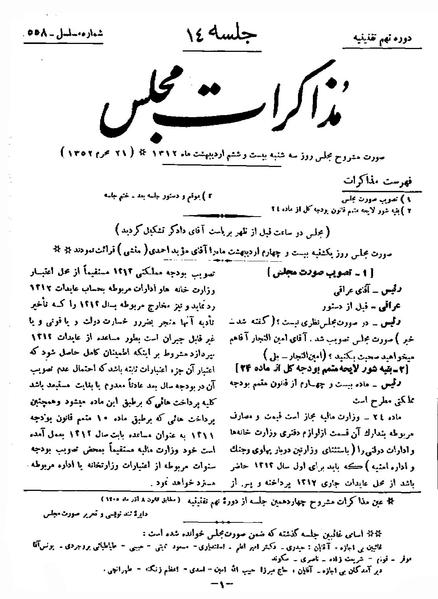 دوره نهم تقنینیه
جلسه ۱۴
شماره مسلسل - ۵۵۸
مذاکرات مجلس
صورت مشروح مجلس روز سه شنبه بیست و ششم اردیبهشت ماه ۱۳۱۲ (۲۱ محرم ۱۳۵۲)
فهرست مذاکرات
۱) تصویب صورت مجلس
۲) بقیه شور لایحه متمم قانون بودجه کل از ماده ۲۴
۲) موقع و دستور جلسه بعد - ختم جلسه
(مجلس دو ساعت قبل از ظهر بریاست آقای دادگر تشکیل گردید)
صورت مجلس روز یکشنبه بیست و چهارم اردیبهشت ماه را آقای مؤید احمدی (منشی) قرائت نمودند
[۱ - تصویب صورت مجلس]
رئیس - آقای عراقی
عراقی - قبل از دستور
رئیس - در صورت مجلس نظری نیست؟ (گفته شد -
خیر) صورت مجلس تصویب شد. آقای امین التجار آقا هم
میخواهید صحبت بکنید؟ (امین التجار - بلی)
[۲- بقیه شور لایحه متمم بودجه کل از ماده ۲۴]
رئیس - ماده بیست و چهارم از قانون متمم بودجه
مملکتی مطرح است
ماده ۲۴ - وزارت مالیه مجاز است قیمت و مصارف
مربوطه بتدارک آن قسمت از لوازم دفتری وزارت خانه‌ها
و ادارات دولتی را (باستثنای وزارتین دربار پهلوی و جنگ
و اداره امنیه) که باید برای اول سال ۱۳۱۳ حاضر
باشد از محل عایدات جاری ۱۳۱۲ پرداخته و پس از
تصویب بودجه مملکتی ۱۳۱۳ مستقیماً از محل اعتبار
وزارت خانه ها و ادارات مربوطه بحساب عایدات ۱۳۱۲
رد نماید و نیز مخارج مربوطه بسال ۱۳۱۲ را که تأخیر
تأدیه آنها منجر بضرر و خسارت دولت و یا فوتی و یا
غیر قابل جبران است بطور مساعده از عایدات ۱۳۱۲
بپردازد مشروط بر اینکه اطمینان کامل حاصل شود که
اعتبار آن جزء اعتبارات ثابته باشد که احتمال عدم تصویب
آن در بودجه سال بعد عادتاً معدوم یا بغایت مستبعد باشد
کلیه پرداخت هائی که بر طبق این ماده میشود و همچنین
پرداخت هائی که بر طبق ماده ۱۰ متمم قانون بودجه
۱۳۱۱ به عنوان مساعده بابت سال ۱۳۱۲ بعمل آمده
است خود وزارت مالیه بمحض تصویب بودجه
سنوات مربوطه از اعتبارات وزارتخانه یا اداره مربوطه
مسترد خواهد نمود.
عین مذاکرات مشروح چهاردهمین جلسه از دوره نهم تقنینیه (مطابق قانون ۸ آذر ماه ۱۳۰۵)
دایرهٔ تند نویسی و تحریر صورت مجلس
اسامی غائبین جلسه گذشته که ضمن صورت مجلس خوانده شده است:
غائبین بی اجازه - آقایان: حیدری - دکتر امیر اعلم - اسفندیاری - مسعود ثابتی - حبیبی - طباطبائی بروجردی - یونس آقا
موقر - قوام - شریعت زاده - ناصری - سکوند
دیر آمدگان بی اجازه - آقایان: حاج میرزا حبیب الله امین - اسدی - اعظم زنگنه - طهرانچی.
-۱-